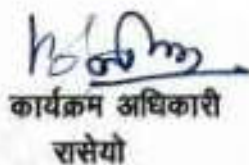 कार्यक्रम अधिकारी
रासेयो